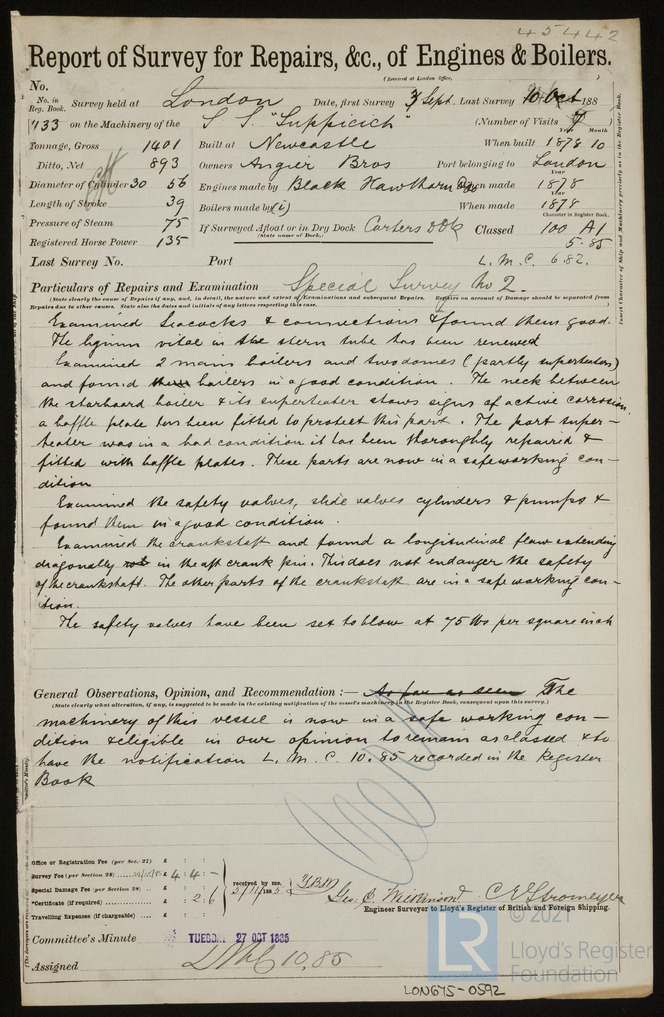 45442
Report of Survey for Repairs, &c., of Engines & Boilers.
(Received at London Office, )
No.
No. in Reg. Book. Survey held at London Date, first Survey 3 Sept. Last Survey 10 Oct 188
733 on the Machinery of the S S "Suppicich" (Number of Visits 7 )
Tonnage, Gross 1401 Built at Newcastle When built 1878 10
Year Month
Ditto, Net 893 Owners Angier Bros Port belonging to London
Diameter of Cylinder 30 56 Engines made by Black Hawthorn When made 1878
Year
Length of Stroke 39 Boilers made by (i) When made 1878
Year
Pressure of Steam 75 If Surveyed Afloat or in Dry Dock Carters Dck Classed 100 A1
(State name of Dock.) Character in Register Book.
Registered Horse Power 135 5.85
Last Survey No. Port L. M. C. 6.82.
Particulars of Repairs and Examination Special Survey No 2.
(State clearly the cause of Repairs if any, and, in detail, the nature and extent of Examinations and subsequent Repairs. Repairs on account of Damage should be separated from
Repairs due to other causes. State also the dates and initials of any letters respecting this case.)
Examined Seacocks & connections & found them good.
The lignum vitae in the stern tube has been renewed
Examined 2 main boilers and two domes (partly superheaters)
and found them boilers in a good condition. The neck between
the starboard boiler & its superheater shows signs of active corrosion,
a baffle plate has been fitted to protect this part. The port super-
heater was in a bad condition it has been thoroughly repaired &
fitted with baffle plates. These parts are now in a safe working con-
dition
Examined the safety valves, slide valves cylinders & pumps &
found them in a good condition.
Examined the crankshaft and found a longitudinal flaw extending
diagonally in the aft crank pin. This does not endanger the safety
of the crankshaft. The other parts of the crankshaft are in a safe working con-
dition.
The safety valves have been set to blow at 75 lbs per square inch
General Observations, Opinion, and Recommendation :— As far as seen The
(State clearly what alteration, if any, is suggested to be made in the existing notification of the vessel's machinery in the Register Book, consequent upon this survey.)
machinery of this vessel is now in a safe working con-
dition & eligible in our opinion to remain as classed & to
have the notification L. M. C. 10.85 recorded in the Register
Book
Office or Registration Fee (per Sec. 27) £ : :
Survey Fee (per Section 28) £ 4 : 4 : -
Special Damage Fee (per Section 28) £ : :
*Certificate (if required) £ : 2 : 6
Travelling Expenses (if chargeable) £ : :
received by me,
Geo. C. Wilkinson C E Stromeyer
Engineer Surveyor to Lloyd's Register of British and Foreign Shipping.
Committee's Minute TUESDAY 27 OCT 1885
Assigned L M C 10,85
© 2021
LR
Lloyd's Register
Foundation
LON675-0592
Insert Character of Ship and Machinery precisely as in the Register Book.